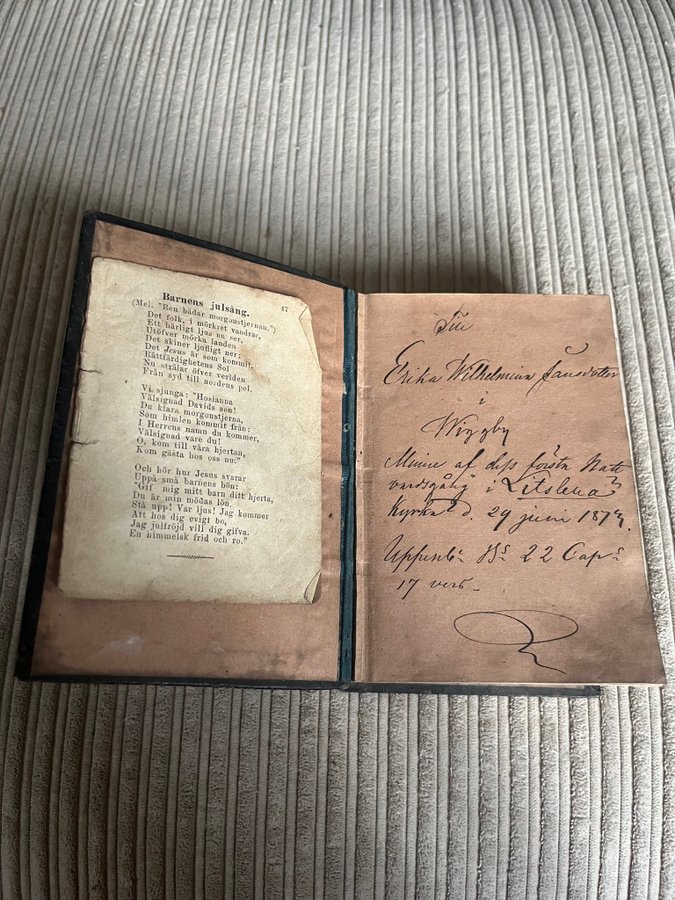 Barnens julsång. 47
(Mel. "Ren bådar morgonstjernan.")
Det folk, i mörkret vandrar,
Ett härligt ljus nu ser,
Utöfver mörka landen
Det skiner ljufligt ner;
Det Jesus är som kommit,
Rättfärdighetens Sol
Nu strålar öfver verlden
Från syd till nordens pol.
Vi sjunga: "Hosianna
Välsignad Davids son!
Du klara morgonstjerna,
Som himlen kommit från;
I Herrens namn du kommer,
Välsignad vare du!
O, kom till våra hjertan,
Kom gästa hos oss nu!"
Och hör hur Jesus svarar
Uppå små barnens bön:
"Gif mig mitt barn ditt hjerta,
Du är min mödas lön.
Stå upp! Var ljus! Jag kommer
Att hos dig evigt bo,
Jag julfröjd vill dig gifva.
En himmelsk frid och ro."
Till
Erika Wilhelmina Jansdotter
i
Wiggby
Minne af dess första Natt
vardsgång i Litslena
Kyrka d. 29 juni
Uppenb: Bk 22 Cap:
17 vers